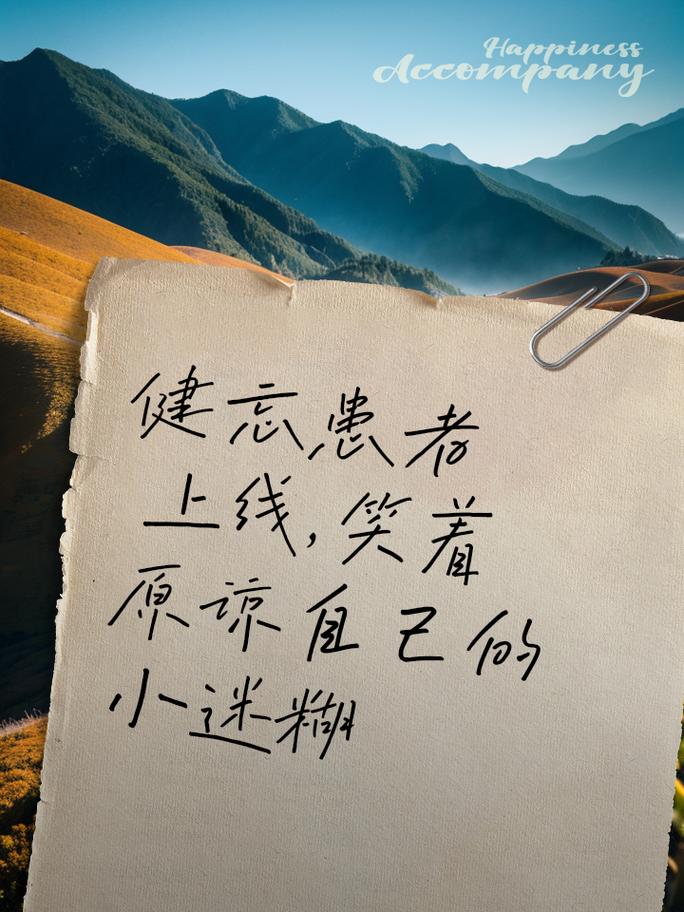 Happiness
Accompany
健忘患者
上线,笑着
原谅自己的
小迷糊